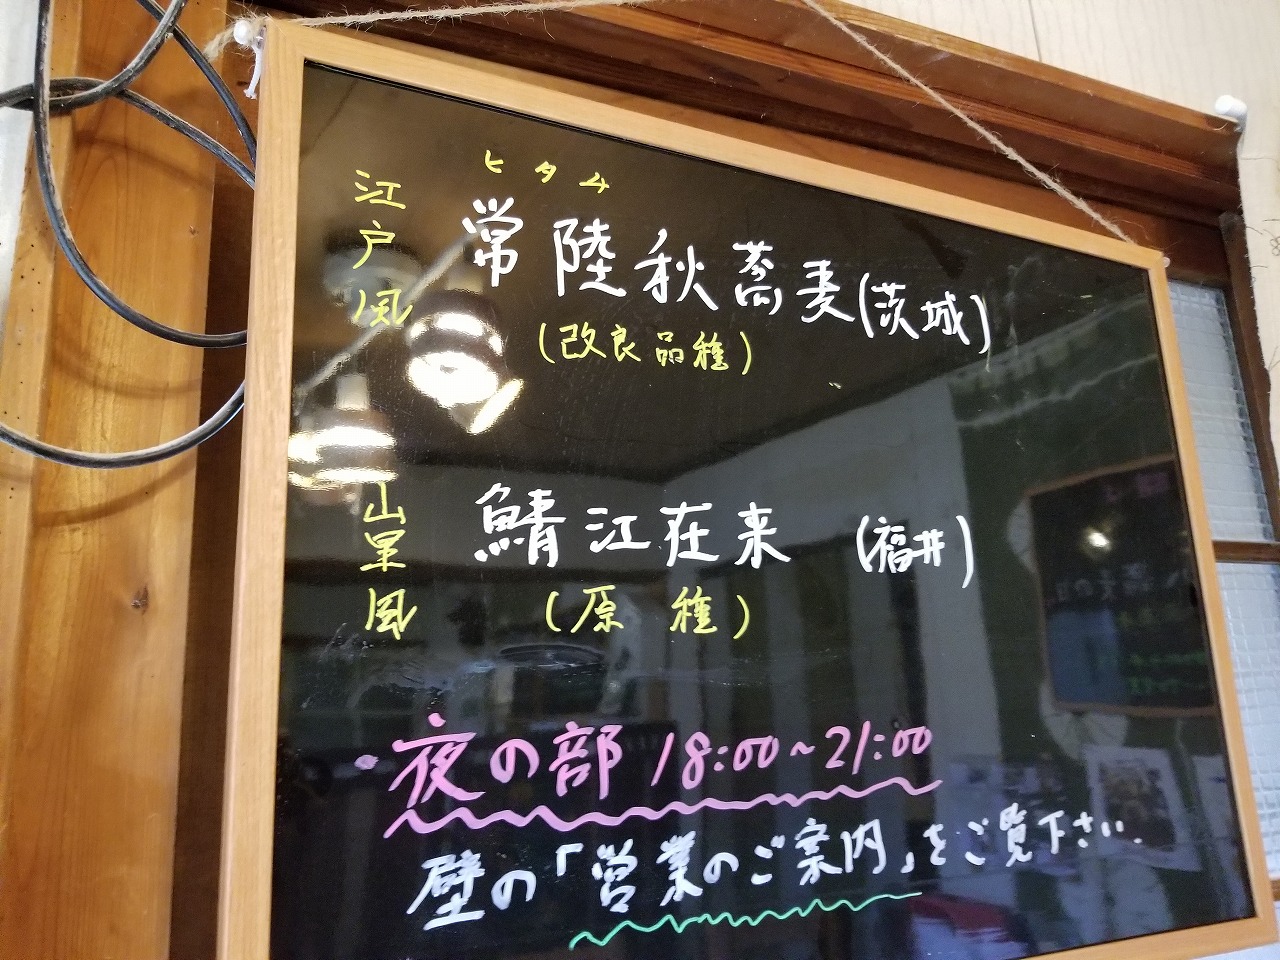 江戸風
ヒタム
常陸秋蕎麦(茨城)
(改良品種)
山里風
鯖江在来 (福井)
(原種)
・夜の部 18:00~21:00
壁の「営業のご案内」をご覧下さい.